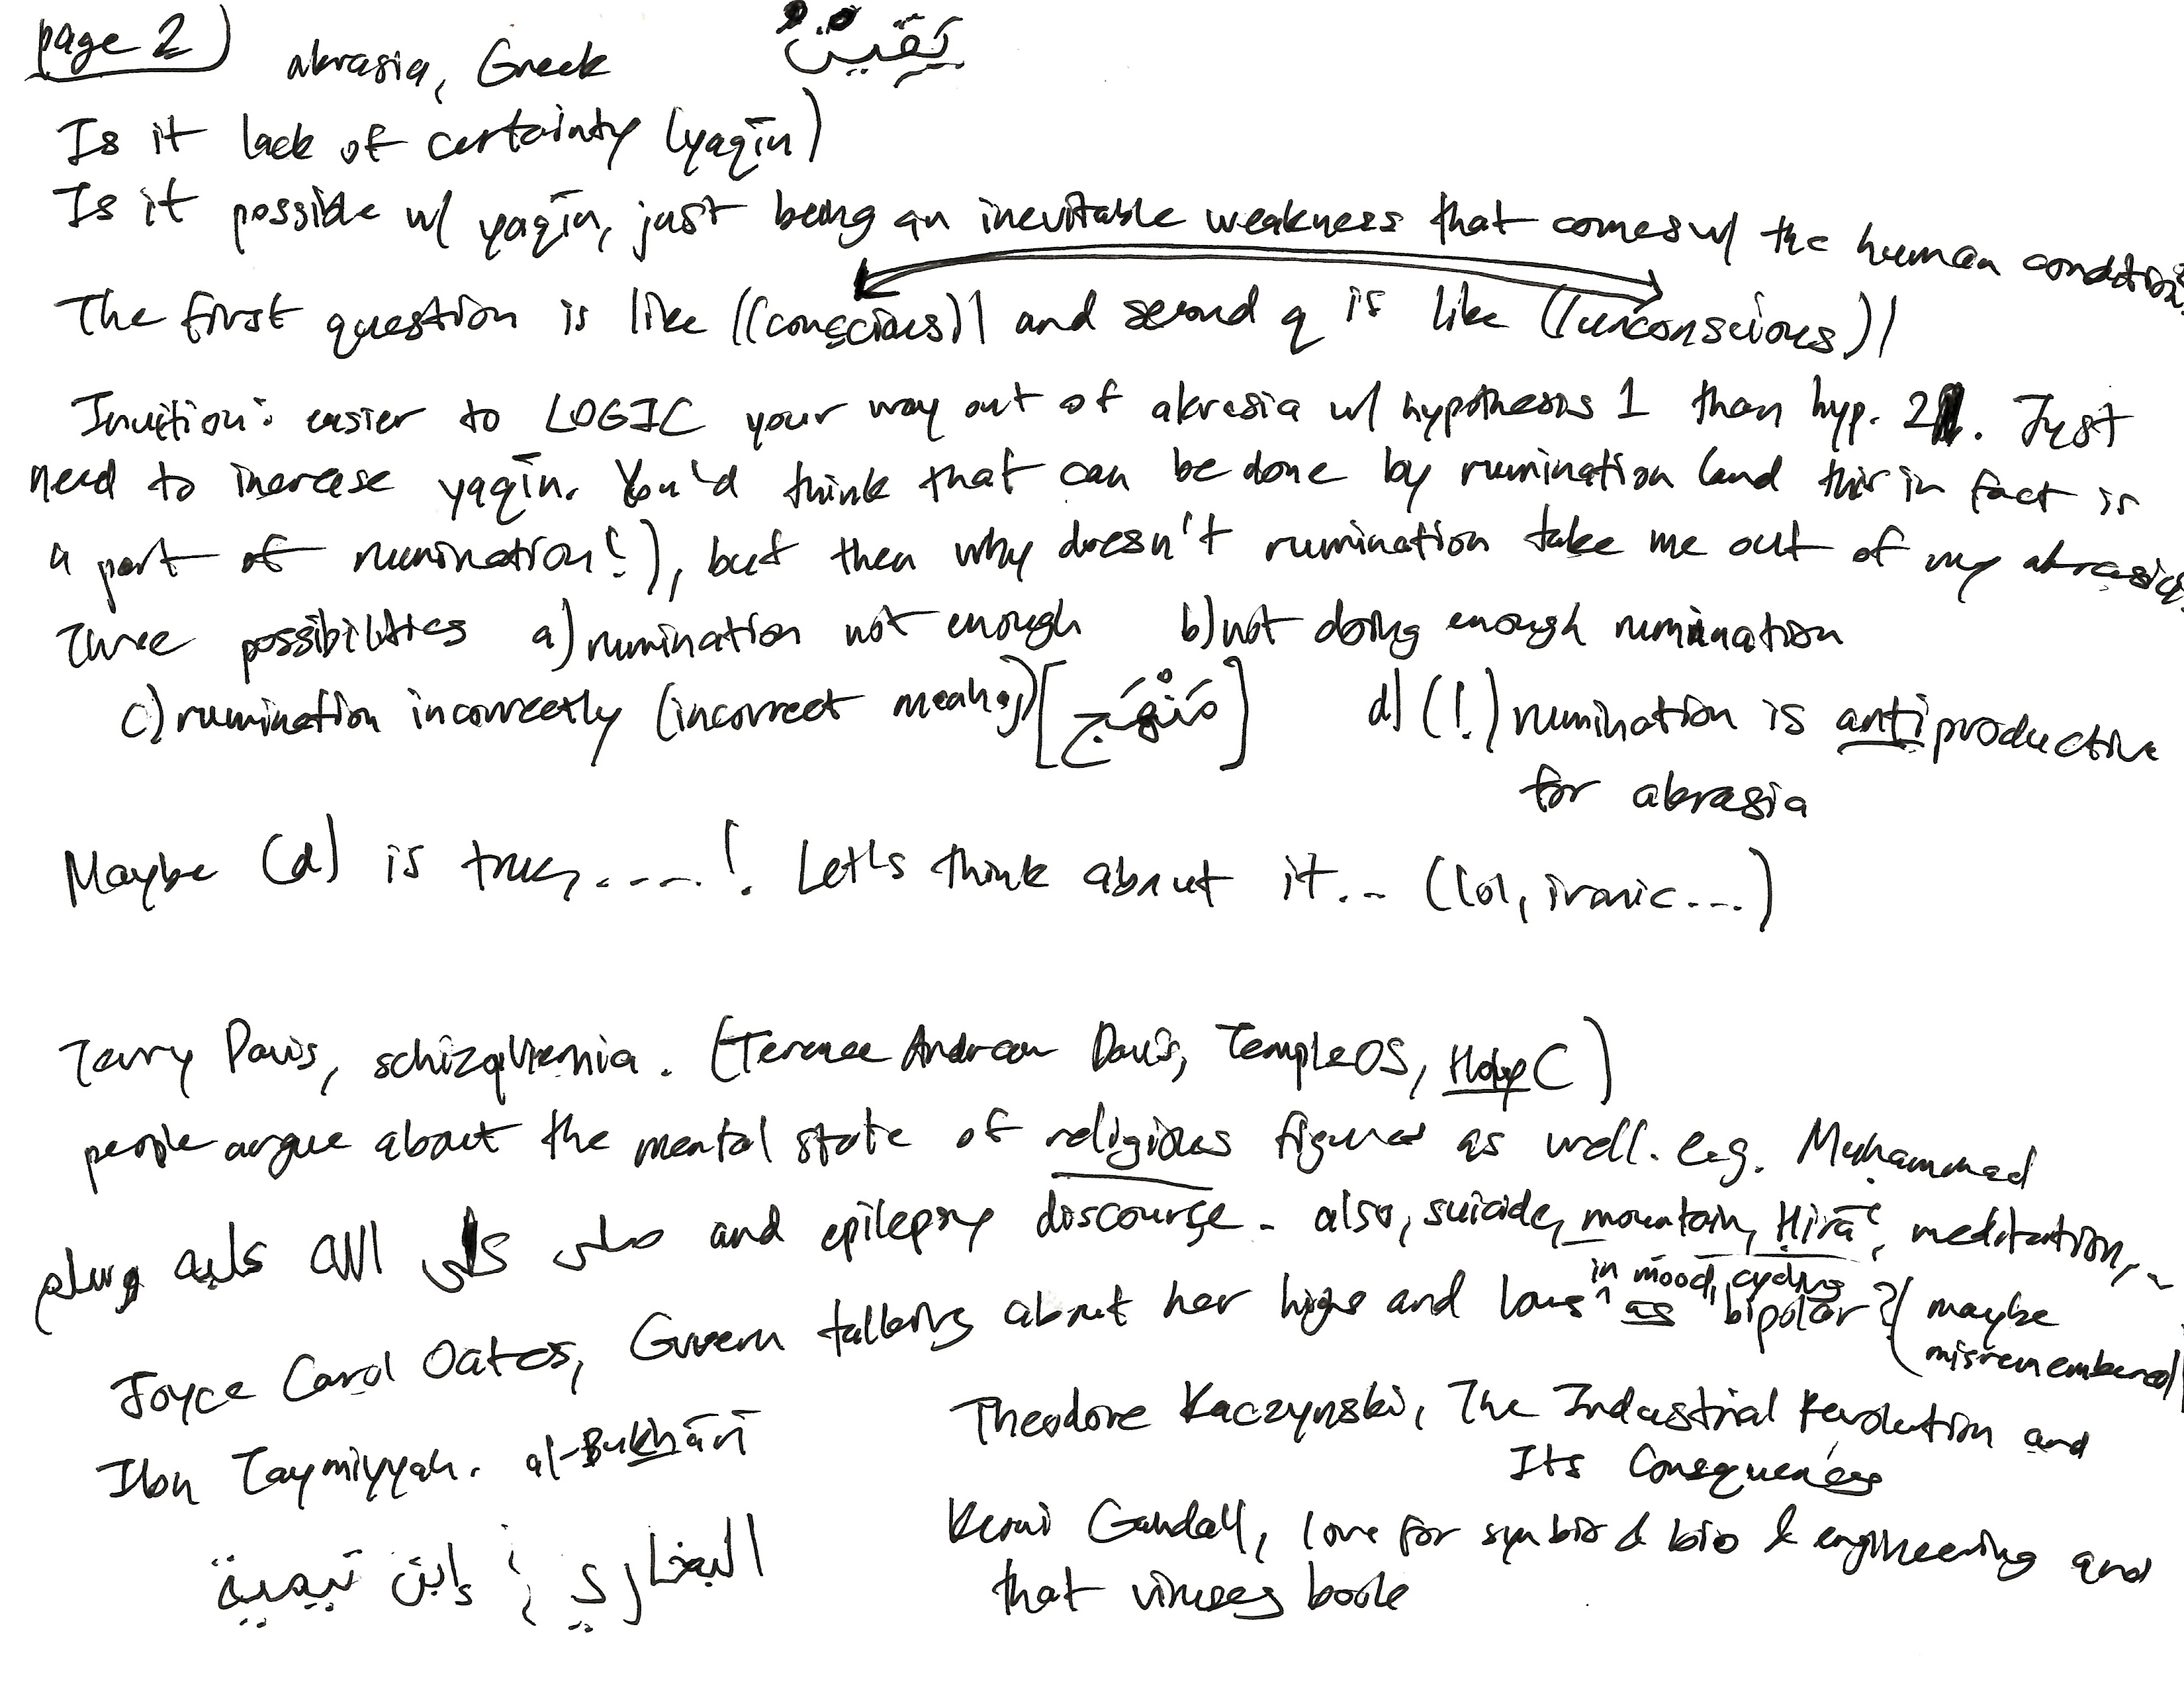 page 2)
akrasia, Greek يَقين
Is it lack of certainty (yaqīn)
Is it possible w/ yaqīn, just being an inevitable weakness that comes w/ the human condition
The first question is like ((conscious)) and second q is like ((unconscious))
Intuition: easier to LOGIC your way out of akrasia w/ hypothesis 1 than hyp. 2. Just
need to increase yaqīn. You'd think that can be done by rumination (and this in fact is
a part of rumination!), but then why doesn't rumination take me out of my akrasia
Three possibilities a) rumination not enough b) not doing enough rumination
c) rumination incorrectly (incorrect manhaj) [مَنْهَج] d) (!) rumination is antiproductive
for akrasia
Maybe (d) is true, ....! Let's think about it... (lol, ironic...)
Terry Davis, schizophrenia. (Terence Andrew Davis, TempleOS, HolyC)
people argue about the mental state of religious figures as well. e.g. Muhammad
صلى الله عليه وسلم and epilepsy discourse. also, suicide, mountain, Ḥirāʾ, meditation,
Joyce Carol Oates, Guvern talking about her highs and lows ^ in mood, cycling as "bipolar"? (maybe
misremembered)
Ibn Taymiyyah. al-Bukhārī
إبن تيمية ; البخاري
Theodore Kaczynski, The Industrial Revolution and
Its Consequences
Gandall, love for synbio & bio & engineering and
that viruses book